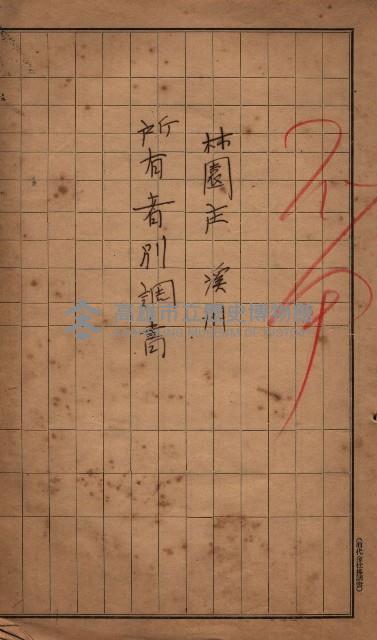 林園庄 溪州
所有者別調書
高雄市立歷史博物館
KAOHSIUNG MUSEUM OF HISTORY